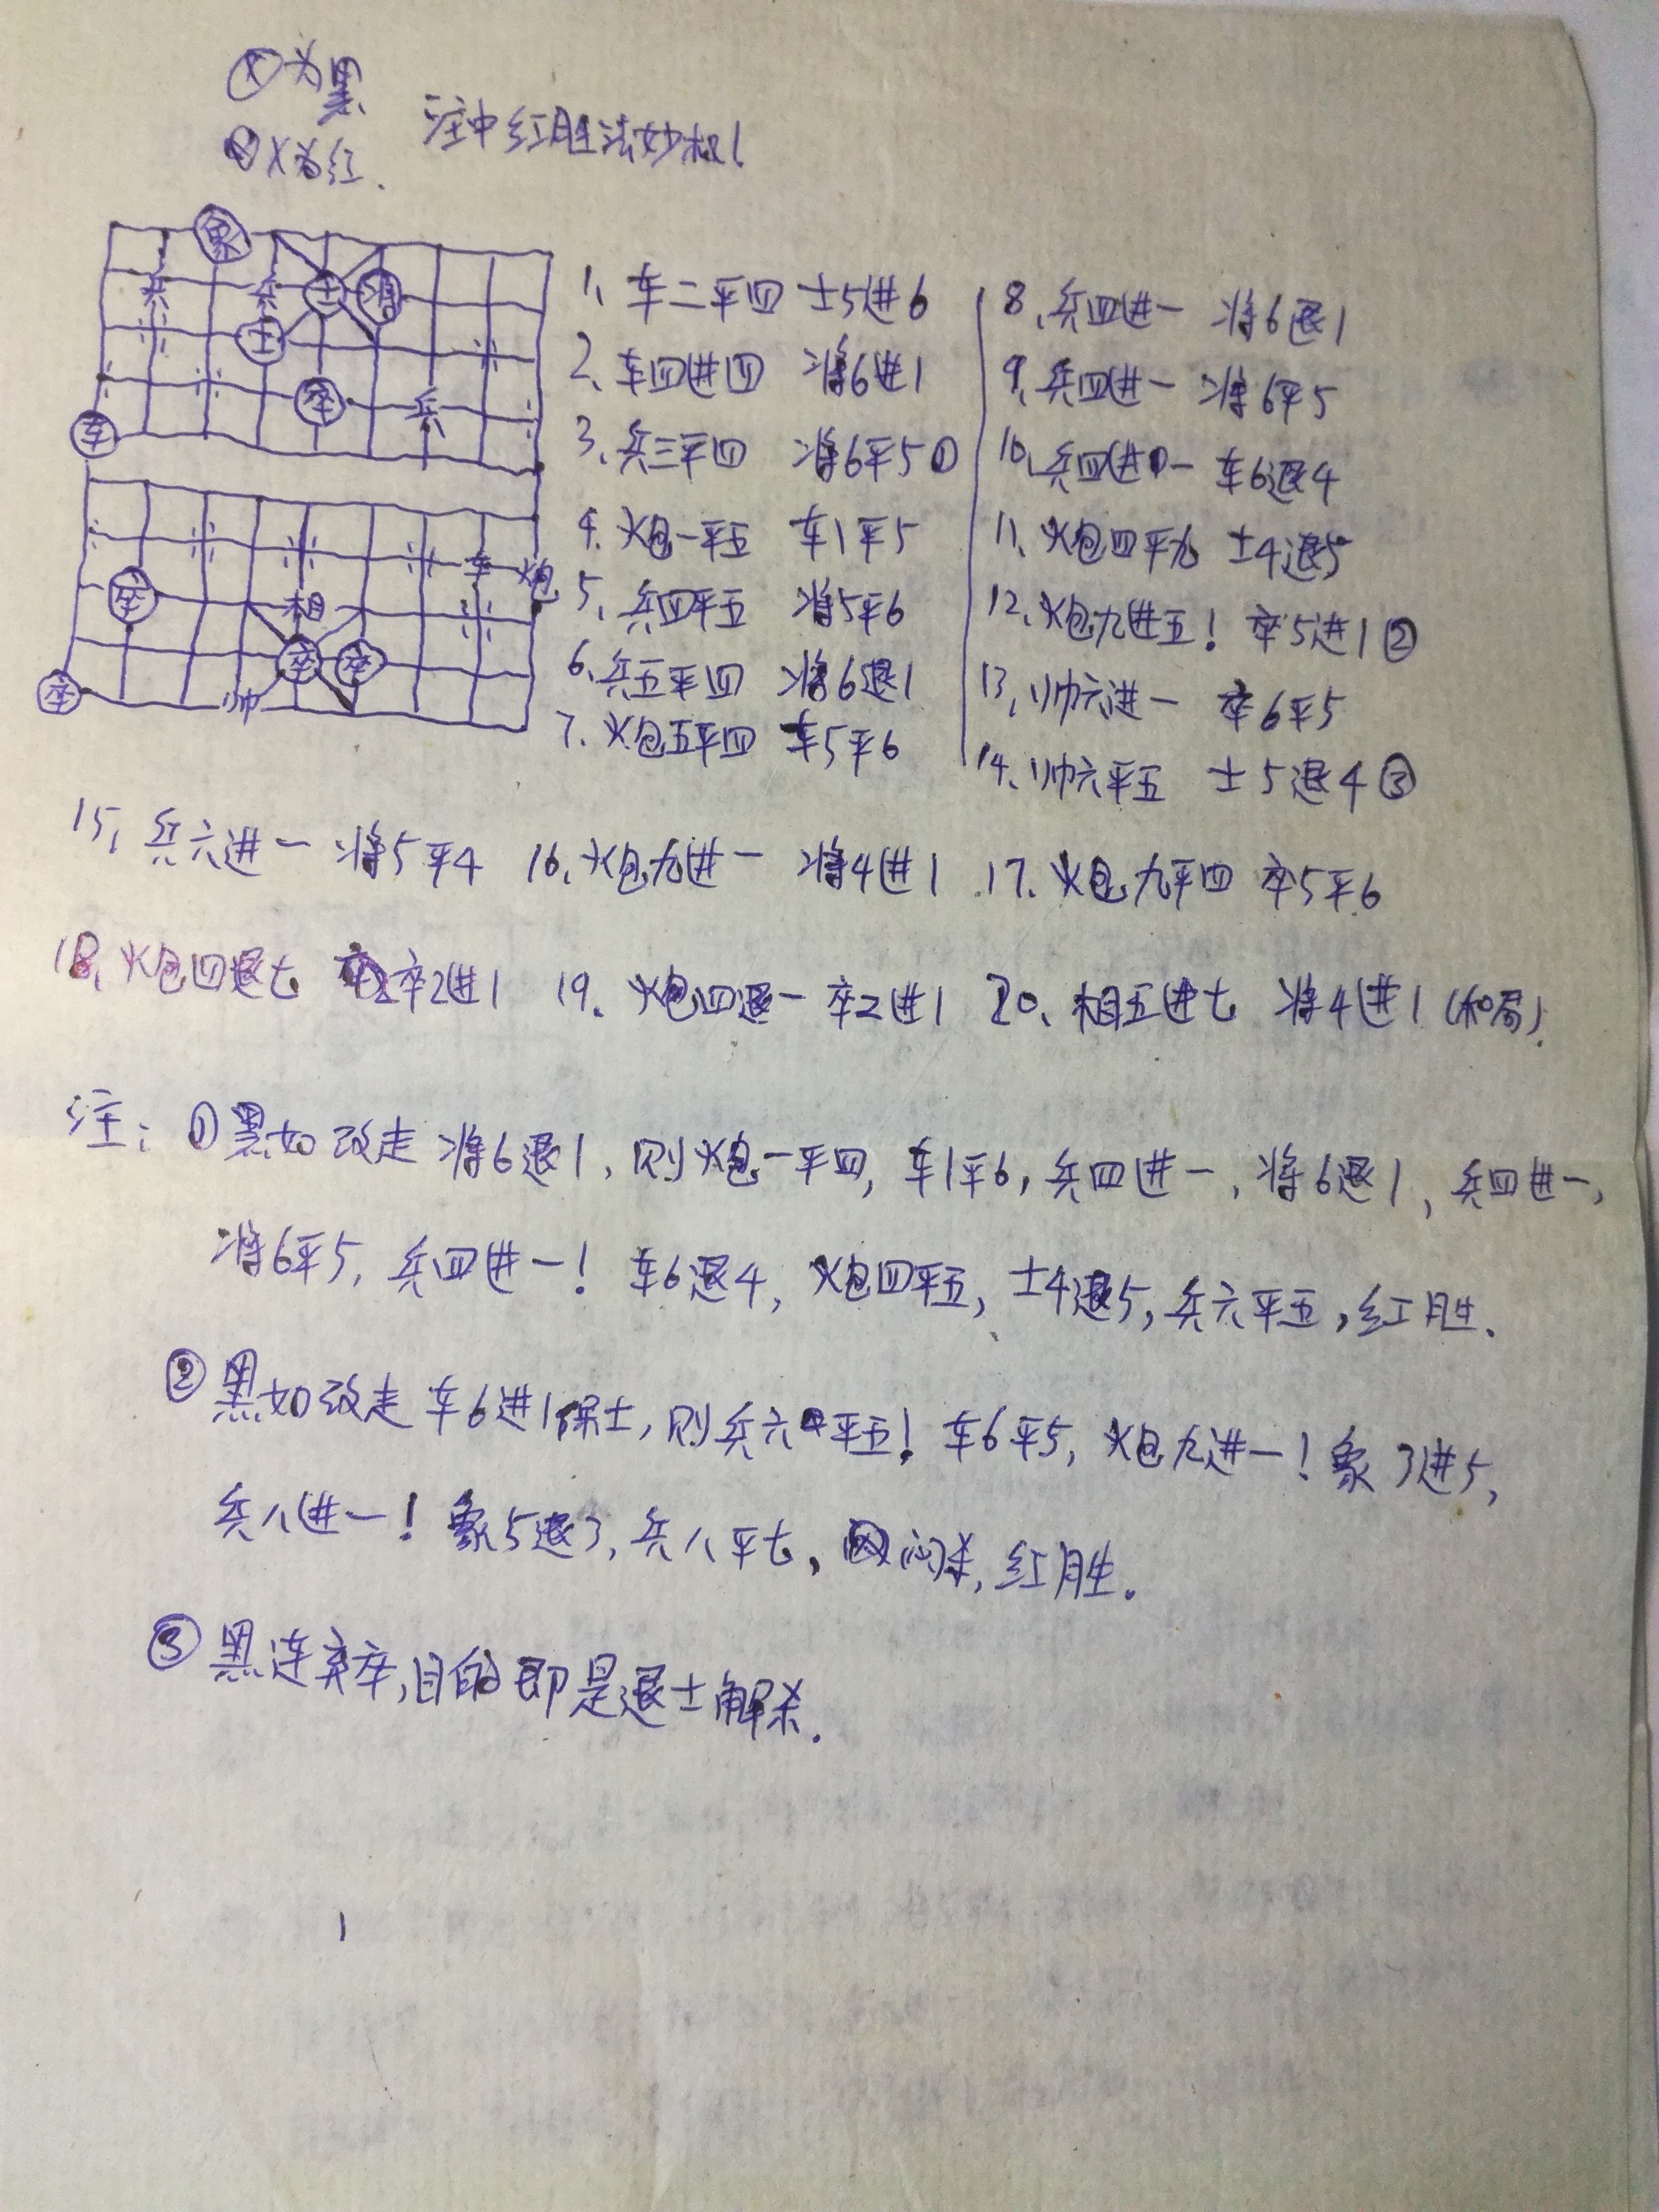 Ⓧ为黑
X为红.
注中红胜法妙极!
象
兵 兵 士 将
士
卒 兵
车
车 炮
卒 相
卒 卒
卒 帅
1、车二平四 士5进6
2、车四进四 将6进1
3、兵三平四 将6平5①
4、炮一平五 车1平5
5、兵四平五 将5平6
6、兵五平四 将6退1
7、炮五平四 车5平6
8、兵四进一 将6退1
9、兵四进一 将6平5
10、兵四进一 车6退4
11、炮四平九 士4退5
12、炮九进五! 卒5进1②
13、帅六进一 卒6平5
14、帅六平五 士5退4③
15、兵六进一 将5平4 16、炮九进一 将4进1 17、炮九平四 卒5平6
18、炮四退七 卒2进1 19、炮四退一 卒2进1 20、相五进七 将4进1(和局).
注:①黑如改走将6退1,则炮一平四,车1平6,兵四进一,将6退1,兵四进一,
将6平5,兵四进一!车6退4,炮四平五,士4退5,兵六平五,红胜.
②黑如改走车6进1保士,则兵六平五!车6平5,炮九进一!象3进5,
兵八进一!象5退3,兵八平七,闷杀,红胜.
③黑连弃卒,目的即是退士解杀.